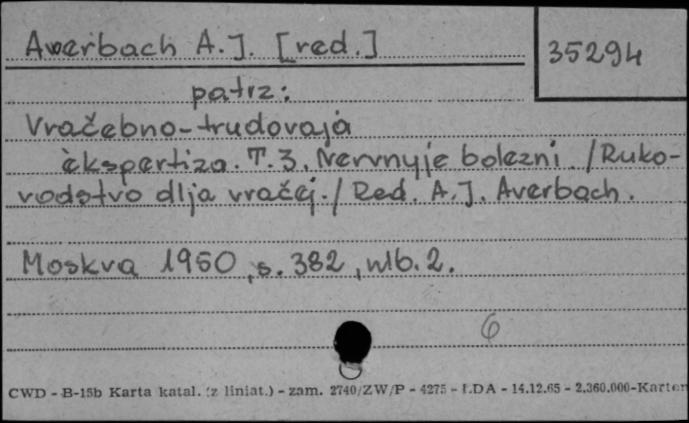 Awerbach A.J. [red.]
35294
patrz:
Vračebno-trudovaja
èkspertiza. T.3. Nervnyje bolezni. /Ruko-
vodstvo dlja vračej./ Red. A.J. Averbach.
Moskva 1960, s. 382, nlb. 2.
6
CWD - B-15b Karta katal. (z liniat.) - zam. 2740/ZW/P - 4275 - LDA - 14.12.65 - 2.360.000-Karton